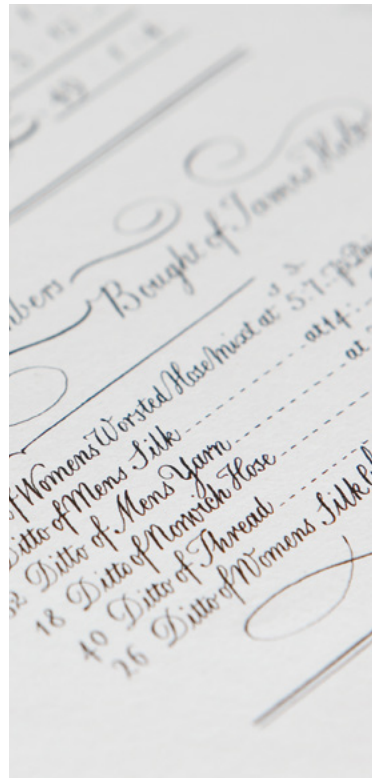 Bought of James
of Womens Worsted Hose mixt at 5.7. p
Ditto of Mens Silk at 14:
Ditto of Mens Yarn at
18 Ditto of Norwich Hose
40 Ditto of Thread
26 Ditto of Womens Silk